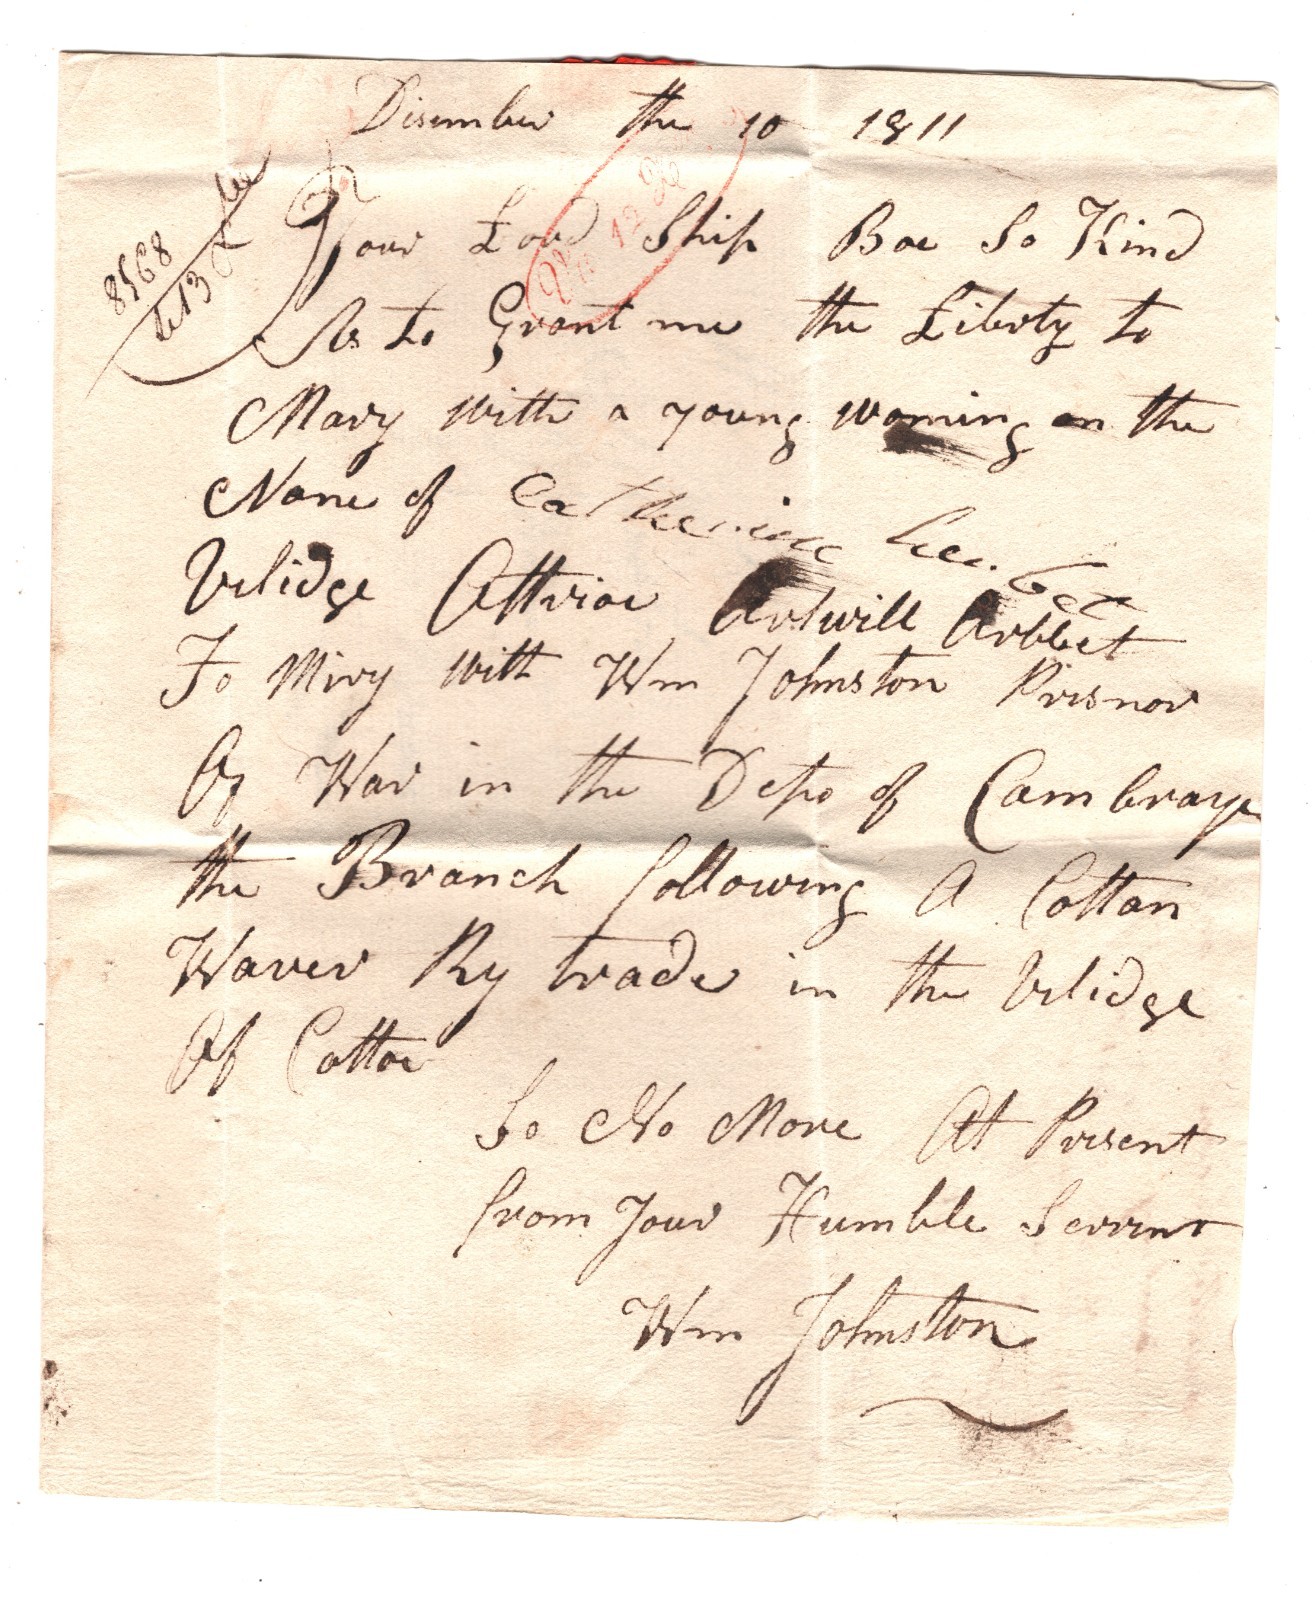 Disember the 10 1811
8568
613
Your Lord Ship Bae So Kind
As to Grant me the Liberty to
Mary with a young woming on the
Name of Catherine
Velidge Attriae Artwill Arbbet
To Miry with Wm Johnston Prisnor
Of War in the Depo of Cambraye
the Branch follawing A Cottan
Waver By trade in the Velidge
Of Cottae
So No More At Present
from Your Humble Servent
Wm Johnston